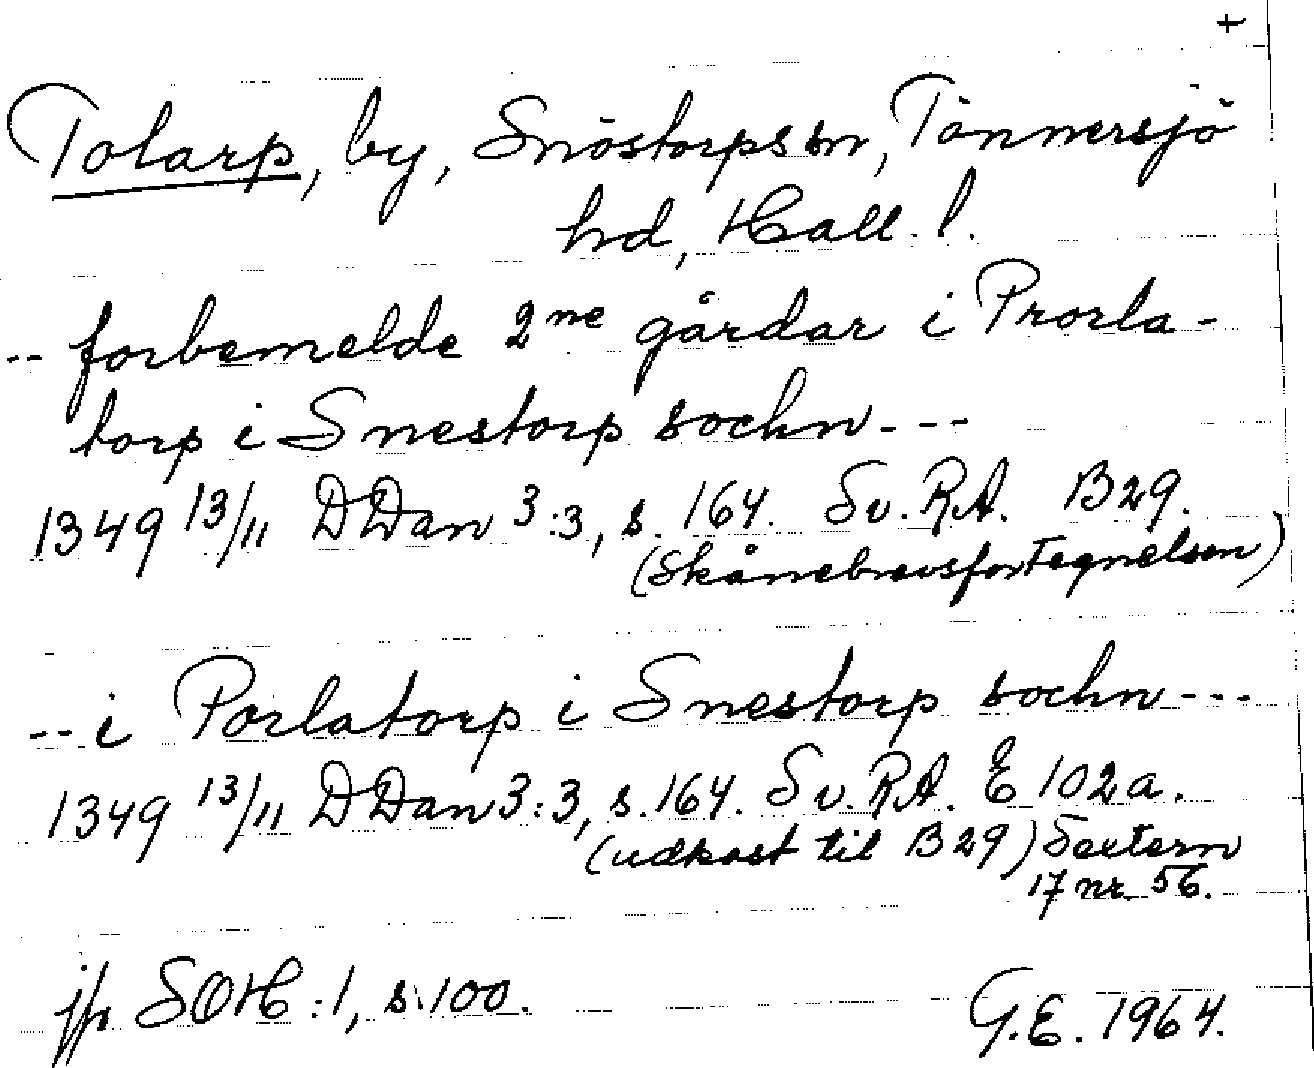 +
Tolarp, by, Snöstorps sn, Tönnersjö
hd, Hall. l.
-- forbemelde 2ne gårdar i Prorla-
torp i Snestorp sochn---
1349 13/11 DDan 3:3, s. 164. Sv. RA. B29.
(Skånebrevsfortegnelsen)
-- i Porlatorp i Snestorp sochn---
1349 13/11 DDan 3:3, s. 164. Sv. RA. E 102a.
(udkast til B29) Sextern
17 nr. 56.
jfr SOH :1, s. 100.
G.E. 1964.